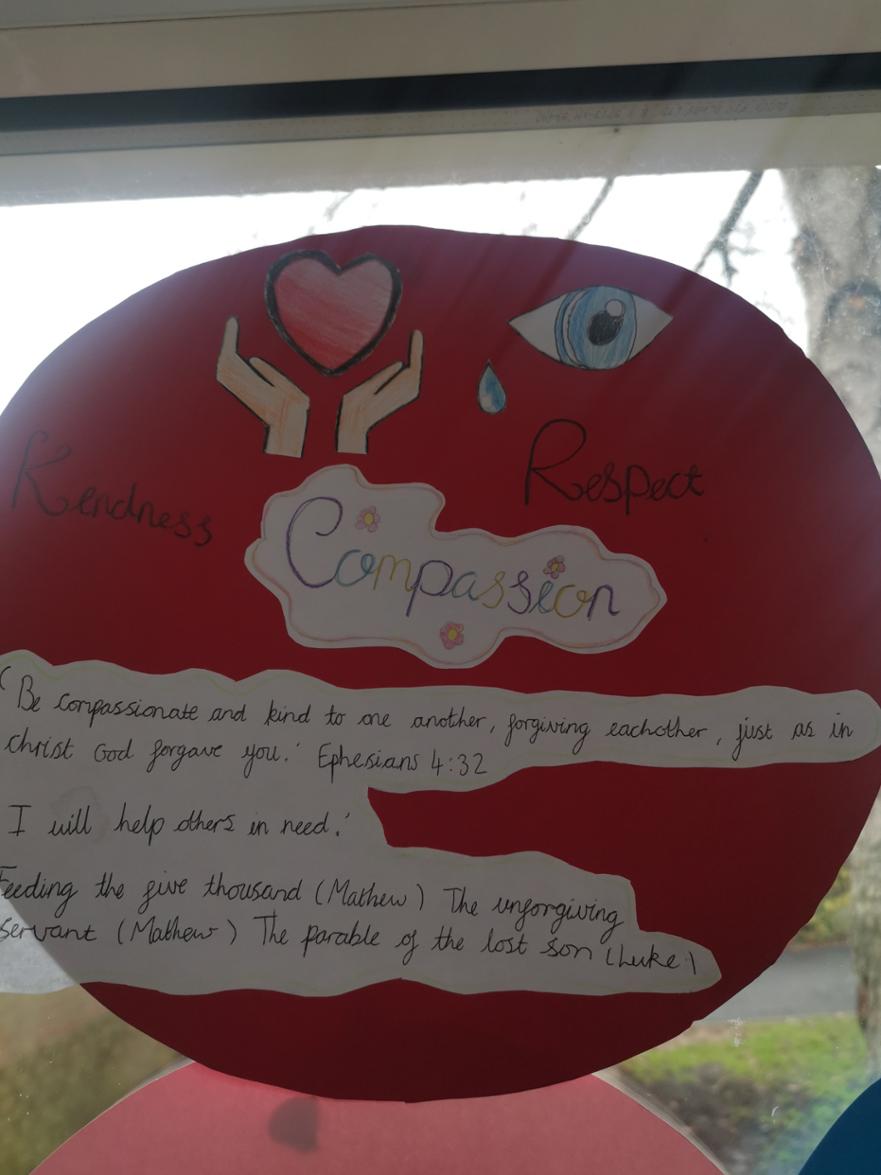 Kendness
Respect
Compassion
'Be compassionate and kind to one another, forgiving eachother, just as in
christ God forgave you.' Ephesians 4:32
I will help others in need.'
Feeding the five thousand (Mathew) The unforgiving
servant (Mathew) The parable of the lost son (Luke)